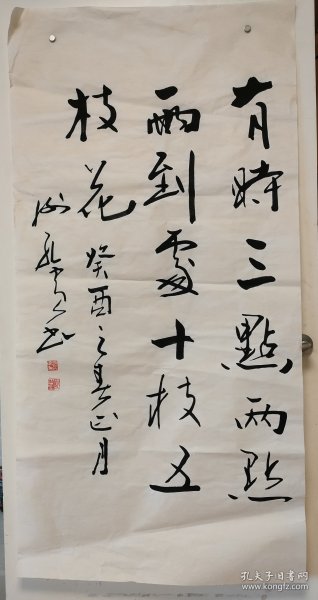 有時三點兩點
雨到處十枝五
枝花 癸酉之年正月
書
孔夫子旧书网
www.kongfz.com